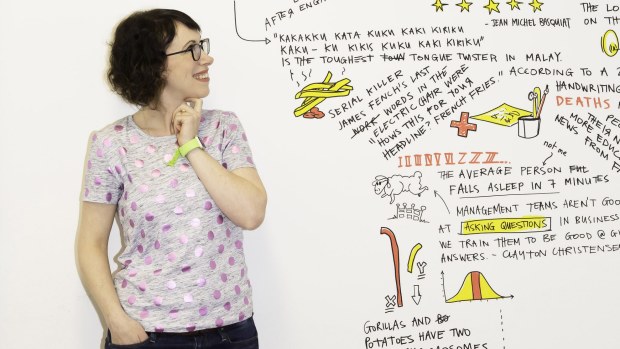 AFTER ENG
- JEAN MICHEL BASQUIAT
THE LO
ON TH
"KAKAKKU KATA KUKU KAKI KIRIKU
KAKU - KU KIKIS KUKU KAKI KIRIKU"
IS THE TOUGHEST TONGUE TWISTER IN MALAY.
SERIAL KILLER
JAMES FENCH'S LAST
WORDS IN THE
ELECTRIC CHAIR WERE
"HOWS THIS FOR YOUR
HEADLINE, FRENCH FRIES."
ACCORDING TO A 2
HANDWRITING
DEATHS
PE
THEIR N
MORE EDUC
NEWS FROM F
not me
THE AVERAGE PERSON
FALLS ASLEEP IN 7 MINUTES
MANAGEMENT TEAMS AREN'T GOO
AT ASKING QUESTIONS IN BUSINESS
WE TRAIN THEM TO BE GOOD @ G
ANSWERS. - CLAYTON CHRISTENSE
X
Y
GORILLAS AND
POTATOES HAVE TWO